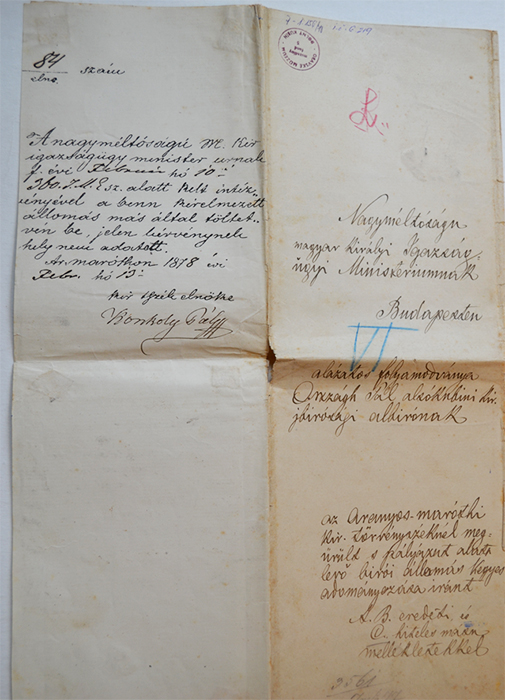 84 szám
eln.
A nagyméltóságú M. Kir
igazságügy minister urnak
f. évi Február hó 10-
360. I. M. E. sz. alatt kelt intéz-
vényével a benn kérelmezett
állomás más által töltet-
vén be, jelen kérvénynek
hely nem adatott.
Ar. maróthon 1878 évi
Febr. hó 13-
kir tszék elnöke
Konkoly Pál
Nagyméltóságu
magyar királyi Igazság-
ügyi Ministeriumnak
Budapesten
VI
alázatos folyamodványa
Országh Pál alsókubini kir.
jbirósági albirónak
az Aranyos-maróthi
kir. törvényszéknél meg-
ürült s pályázat alatt
levő birói állomás kegyes
adományozása iránt
A. B. eredeti és
C. hiteles másu
mellékletekkel